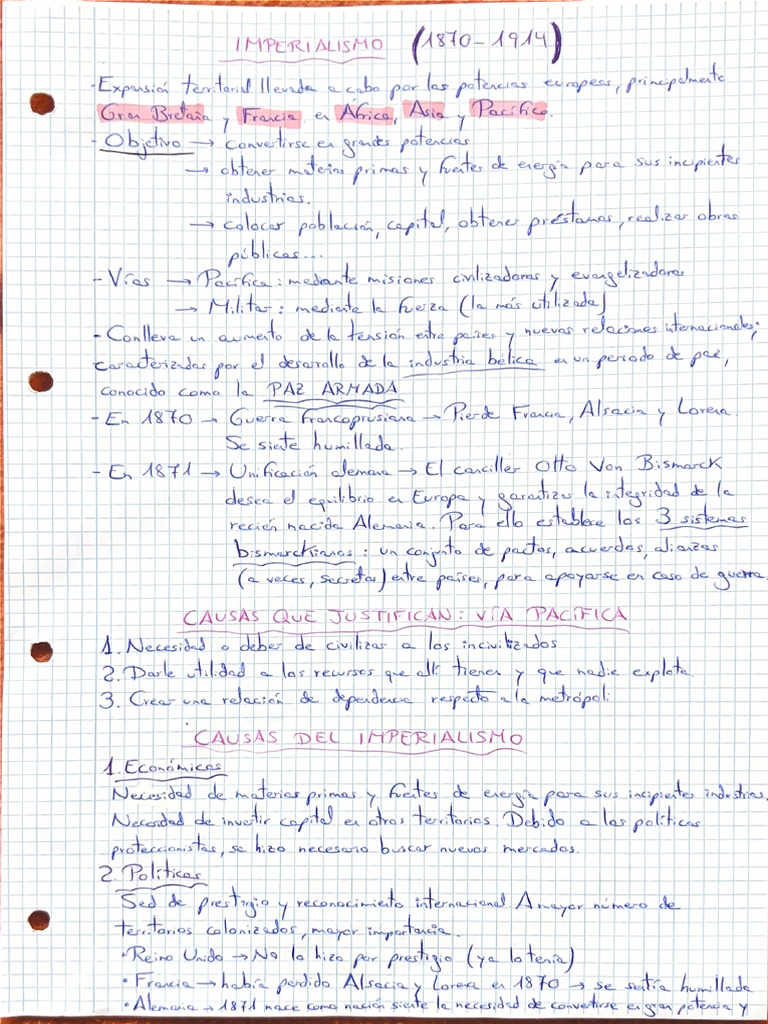 IMPERIALISMO (1870-1914)
· Expansión territorial llevada a cabo por las potencias europeas, principalmente
Gran Bretaña y Francia, en África, Asia y Pacífico.
- Objetivo → convertirse en grandes potencias
→ obtener materias primas y fuentes de energía para sus incipientes
industrias.
→ colocar población, capital, obtener préstamos, realizar obras
públicas...
- Vías → Pacífica: mediante misiones civilizadoras y evangelizadoras
→ Militar: mediante la fuerza (la más utilizada)
- Conlleva un aumento de la tensión entre países y nuevas relaciones internacionales;
caracterizadas por el desarollo de la industria bélica en un periodo de paz,
conocido como la PAZ ARMADA
- En 1870 → Guerra francoprusiana → Pierde Francia, Alsacia y Lorena.
Se siente humillada.
- En 1871 → Unificación alemana → El canciller Otto Von Bismarck
desea el equilibrio en Europa y garantizar la integridad de la
recién nacida Alemania. Para ello establece los 3 sistemas
bismarckianos: un conjunto de pactos, acuerdos, alianzas
(a veces, secretas) entre países, para apoyarse en caso de guerra.
CAUSAS QUE JUSTIFICAN: VÍA PACÍFICA
1. Necesidad o deber de civilizar a los incivilizados
2. Darle utilidad a los recursos que allí tienen y que nadie explota.
3. Crear una relación de dependencia respecto a la metrópoli
CAUSAS DEL IMPERIALISMO
1. Económicas
Necesidad de materias primas y fuentes de energía para sus incipientes industrias.
Necesidad de invertir capital en otros territorios. Debido a las políticas
proteccionistas, se hizo necesario buscar nuevos mercados.
2. Políticas
Sed de prestigio y reconocimiento internacional A mayor número de
territorios colonizados, mayor importancia.
· Reino Unido → No lo hizo por prestigio (ya lo tenía)
· Francia → había perdido Alsacia y Lorena en 1870 → se sentía humillada
· Alemania → 1871 nace como nación siente la necesidad de convertirse en gran potencia y